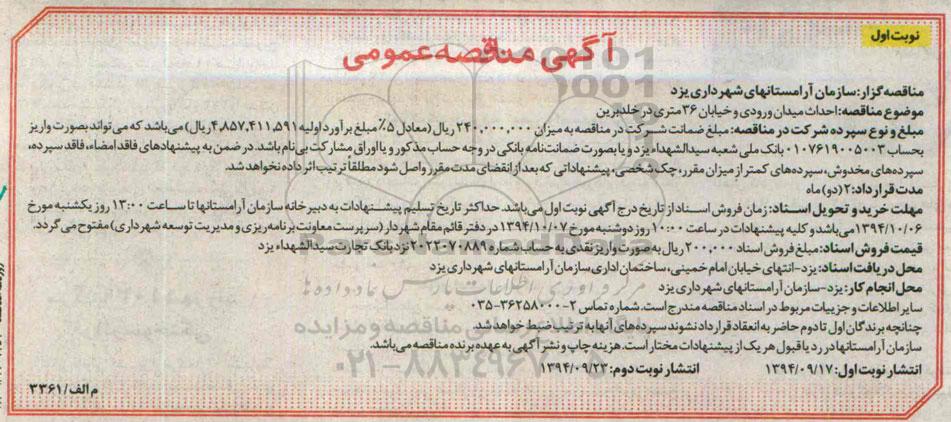 نوبت اول
آگهی مناقصه عمومی
مناقصه گزار: سازمان آرامستانهای شهرداری یزد
موضوع مناقصه: احداث میدان ورودی و خیابان ۳۶ متری در خلدبرین
مبلغ و نوع سپرده شرکت در مناقصه: مبلغ ضمانت شرکت در مناقصه به میزان ۲۴۰,۰۰۰,۰۰۰ ریال (معادل ۵٪ مبلغ برآورد اولیه ۴,۸۵۷,۴۱۱,۵۹۱ ریال) می باشد که می تواند بصورت واریز
بحساب ۰۱۰۷۶۱۹۰۰۵۰۰۳ بانک ملی شعبه سیدالشهداء یزد و یا بصورت ضمانت نامه بانکی در وجه حساب مذکور و یا اوراق مشارکت بی نام باشد. در ضمن به پیشنهادهای فاقد امضاء، فاقد سپرده،
سپرده های مخدوش، سپرده های کمتر از میزان مقرر، چک شخصی، پیشنهاداتی که بعد از انقضای مدت مقرر واصل شود مطلقاً ترتیب اثر داده نخواهد شد.
مدت قرارداد: ۲ (دو) ماه
مهلت خرید و تحویل اسناد: زمان فروش اسناد از تاریخ درج آگهی نوبت اول می باشد. حداکثر تاریخ تسلیم پیشنهادات به دبیرخانه سازمان آرامستانها تا ساعت ۱۳:۰۰ روز یکشنبه مورخ
۱۳۹۴/۱۰/۰۶ می باشد و کلیه پیشنهادات در ساعت ۱۰:۰۰ روز دوشنبه مورخ ۱۳۹۴/۱۰/۰۷ در دفتر قائم مقام شهردار (سرپرست معاونت برنامه ریزی و مدیریت توسعه شهرداری) مفتوح می گردد.
قیمت فروش اسناد: مبلغ فروش اسناد ۲۰۰,۰۰۰ ریال به صورت واریز نقدی به حساب شماره ۲۰۲۲۰۷۰۸۸۹ نزد بانک تجارت سیدالشهداء یزد
محل دریافت اسناد: یزد-انتهای خیابان امام خمینی، ساختمان اداری سازمان آرامستانهای شهرداری یزد
محل انجام کار: یزد-سازمان آرامستانهای شهرداری یزد
سایر اطلاعات و جزییات مربوط در اسناد مناقصه مندرج است. شماره تماس ۲-۳۶۲۵۸۰۰۰-۰۳۵
چنانچه برندگان اول تا دوم حاضر به انعقاد قرارداد نشوند سپرده های آنها به ترتیب ضبط خواهد شد
سازمان آرامستانها در رد یا قبول هر یک از پیشنهادات مختار است. هزینه چاپ و نشر آگهی به عهده برنده مناقصه می باشد.
انتشار نوبت اول: ۱۳۹۴/۰۹/۱۷ انتشار نوبت دوم: ۱۳۹۴/۰۹/۲۳
م الف/۳۳۶۱